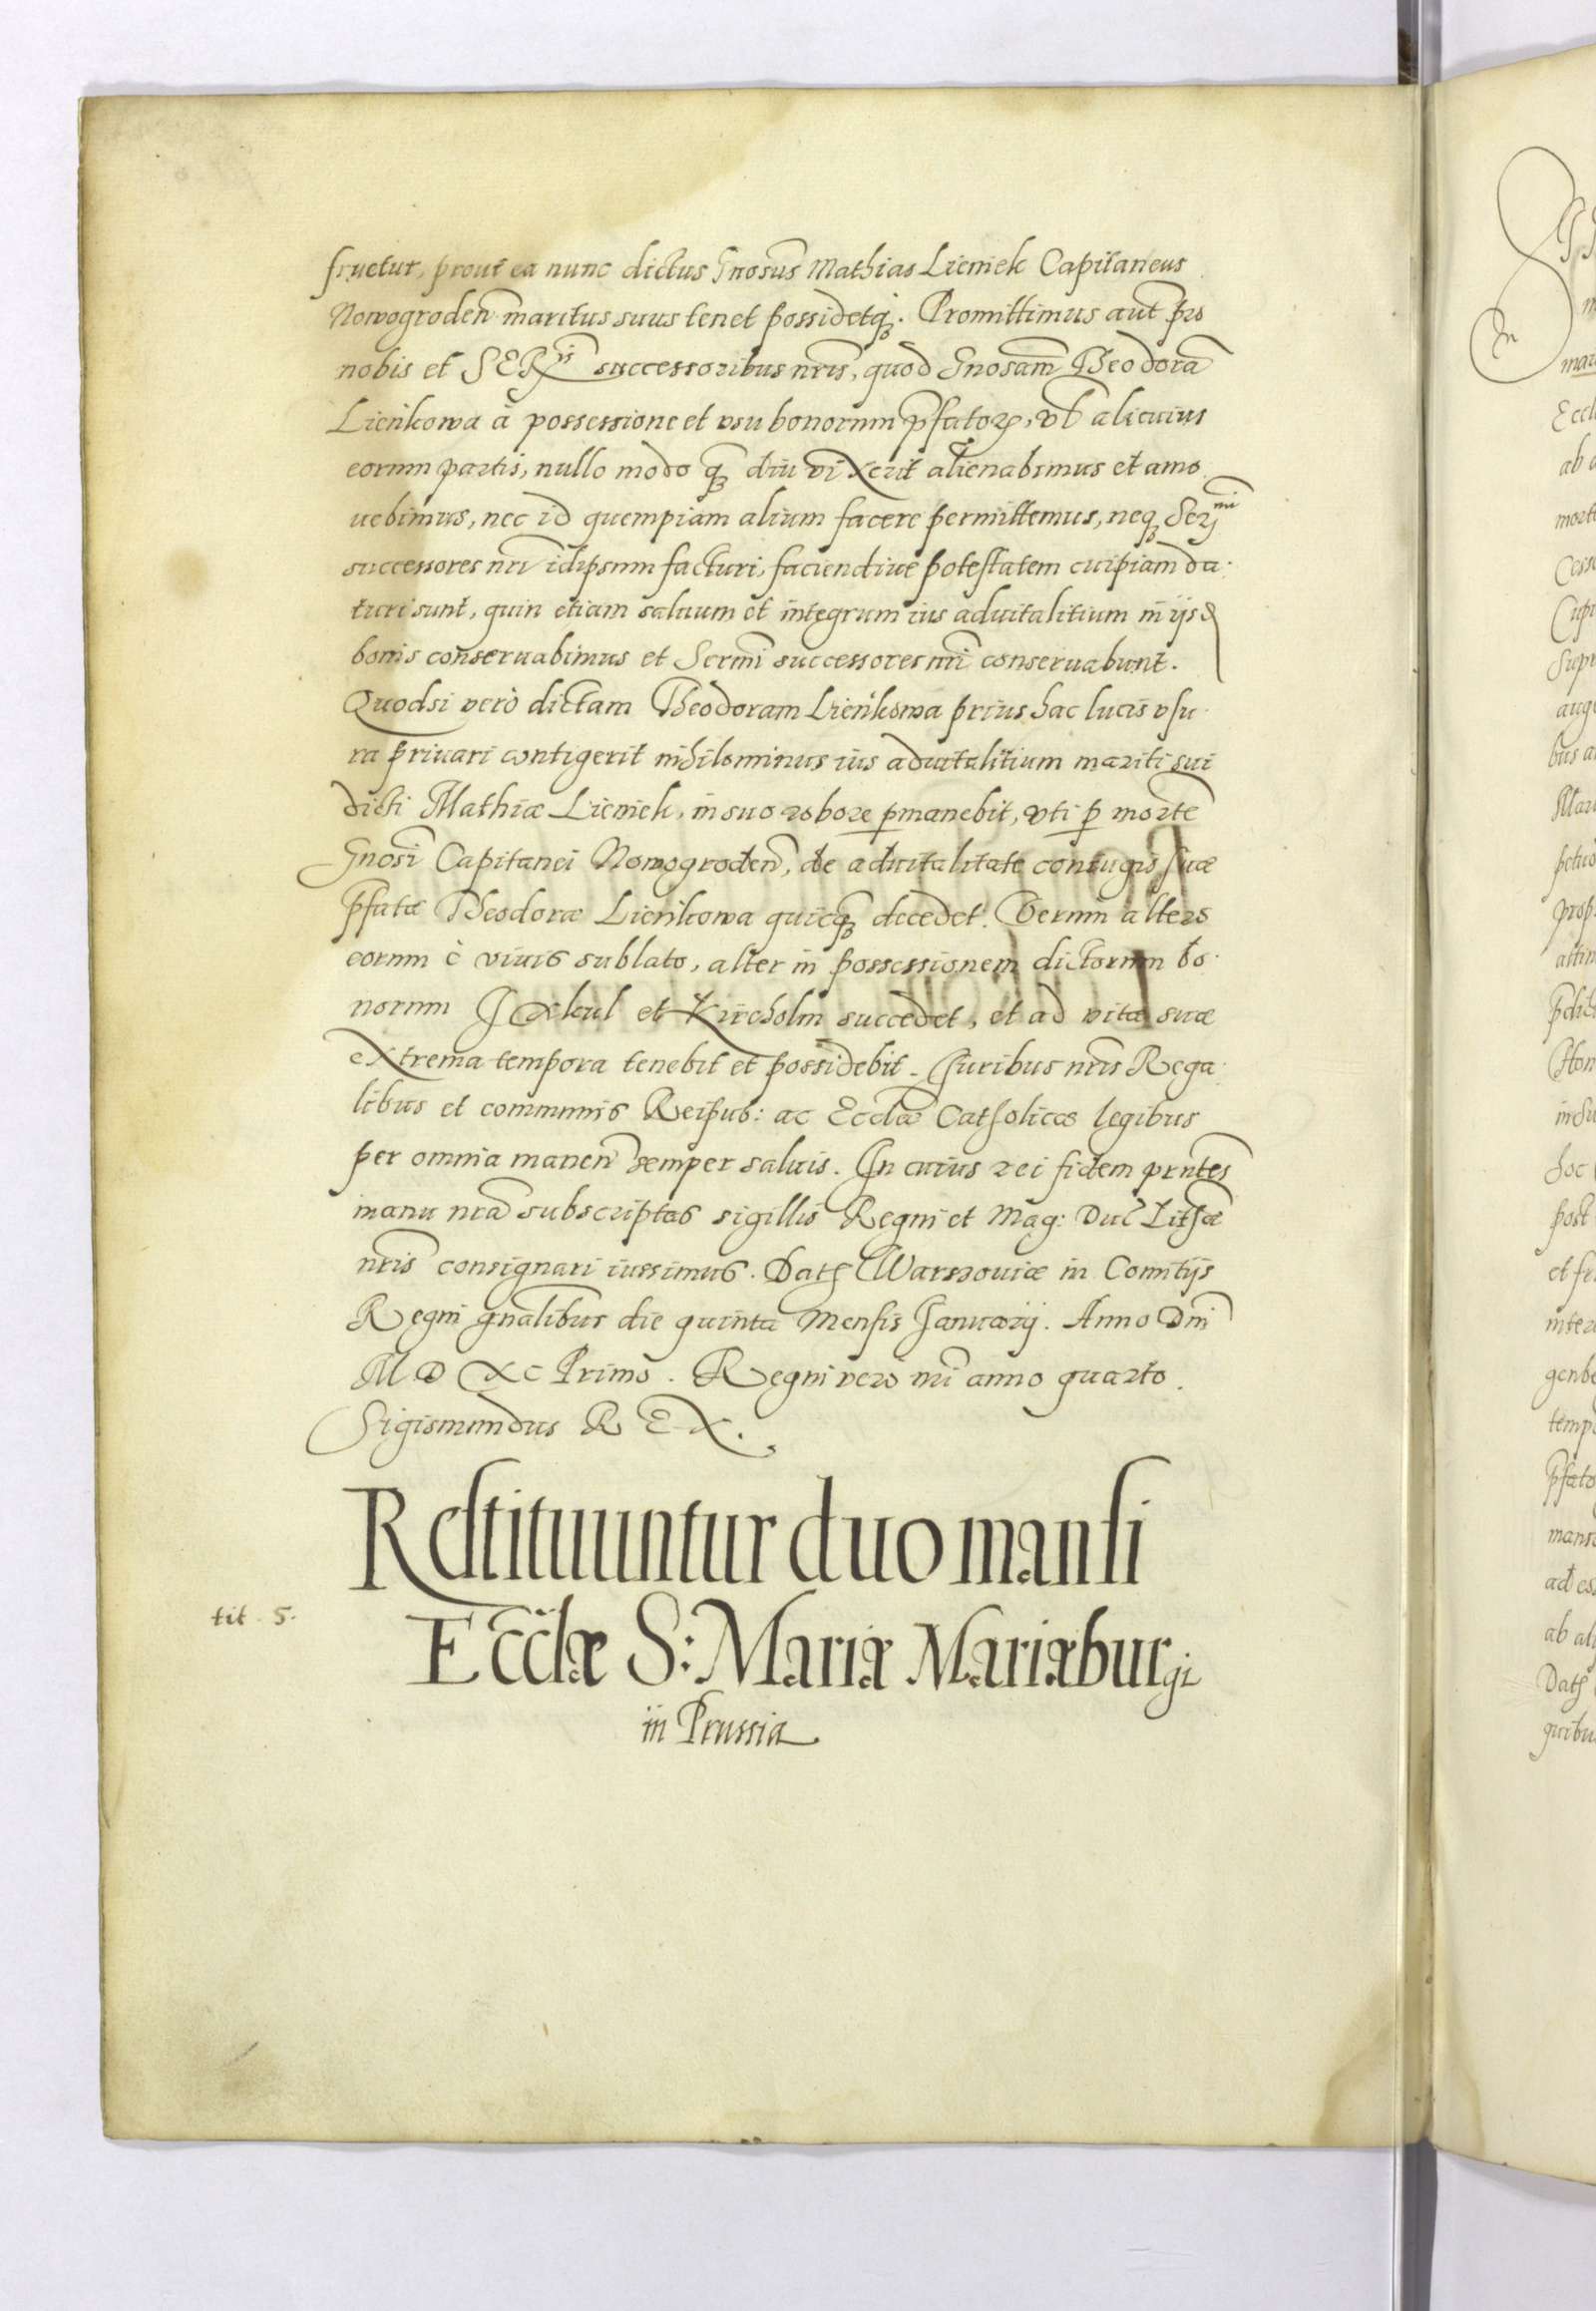 fruetur, prout ea nunc dictus Gnosus Mathias Lieniek Capitaneus
Nowogroden maritus suus tenet possidetq. Promittimus aut pro
nobis et SERis successoribus nris, quod Gnosam Theodora
Lienkowa à possessione et usu bonorum pfator, vl alicuius
eorum partis, nullo modo q diu vixerit alienabimus et amo
uebimus, nec id quempiam alium facere permittemus, neq Sermi
successores nri idipsum facturi, faciendiue potestatem cuipiam da-
turi sunt, quin etiam saluum et integrum ius aduitalitium in ijsd
bonis conseruabimus et Sermi successores nri conseruabunt.
Quodsi verò dictam Theodoram Lienkowa prius hac lucis usu-
ra priuari contigerit nihilominus ius aduitalitium mariti sui
dicti Mathiæ Lieniek, in suo robore pmanebit, uti p morte
Gnosi Capitanei Nowogroden, de aduitalitate coniugis suæ
pfatæ Theodoræ Lienkowa quicq decedet. Verum altero
eorum è viuis sublato, alter in possessionem dictorum bo-
norum Ixkul et Kircholm succedet, et ad vitæ suæ
extrema tempora tenebit et possidebit. Iuribus nris Rega-
libus et communis Reipub: ac Ecclæ Catholicæ legibus
per omnia manen semper saluis. In cuius rei fidem prntes
manu nra subscriptas sigillis Regni et Mag: Duc Lithæ
nris consignari iussimus. Dath Warszouiæ in Comitijs
Regni gnalibus die quinta Mensis Januarij. Anno Dni
MDXC Primo. Regni vero nri anno quarto.
Sigismundus REX.
Restituuntur duo mansi
tit. 5.
Ecclæ S: Mariæ Mariæburgi
in Prussia